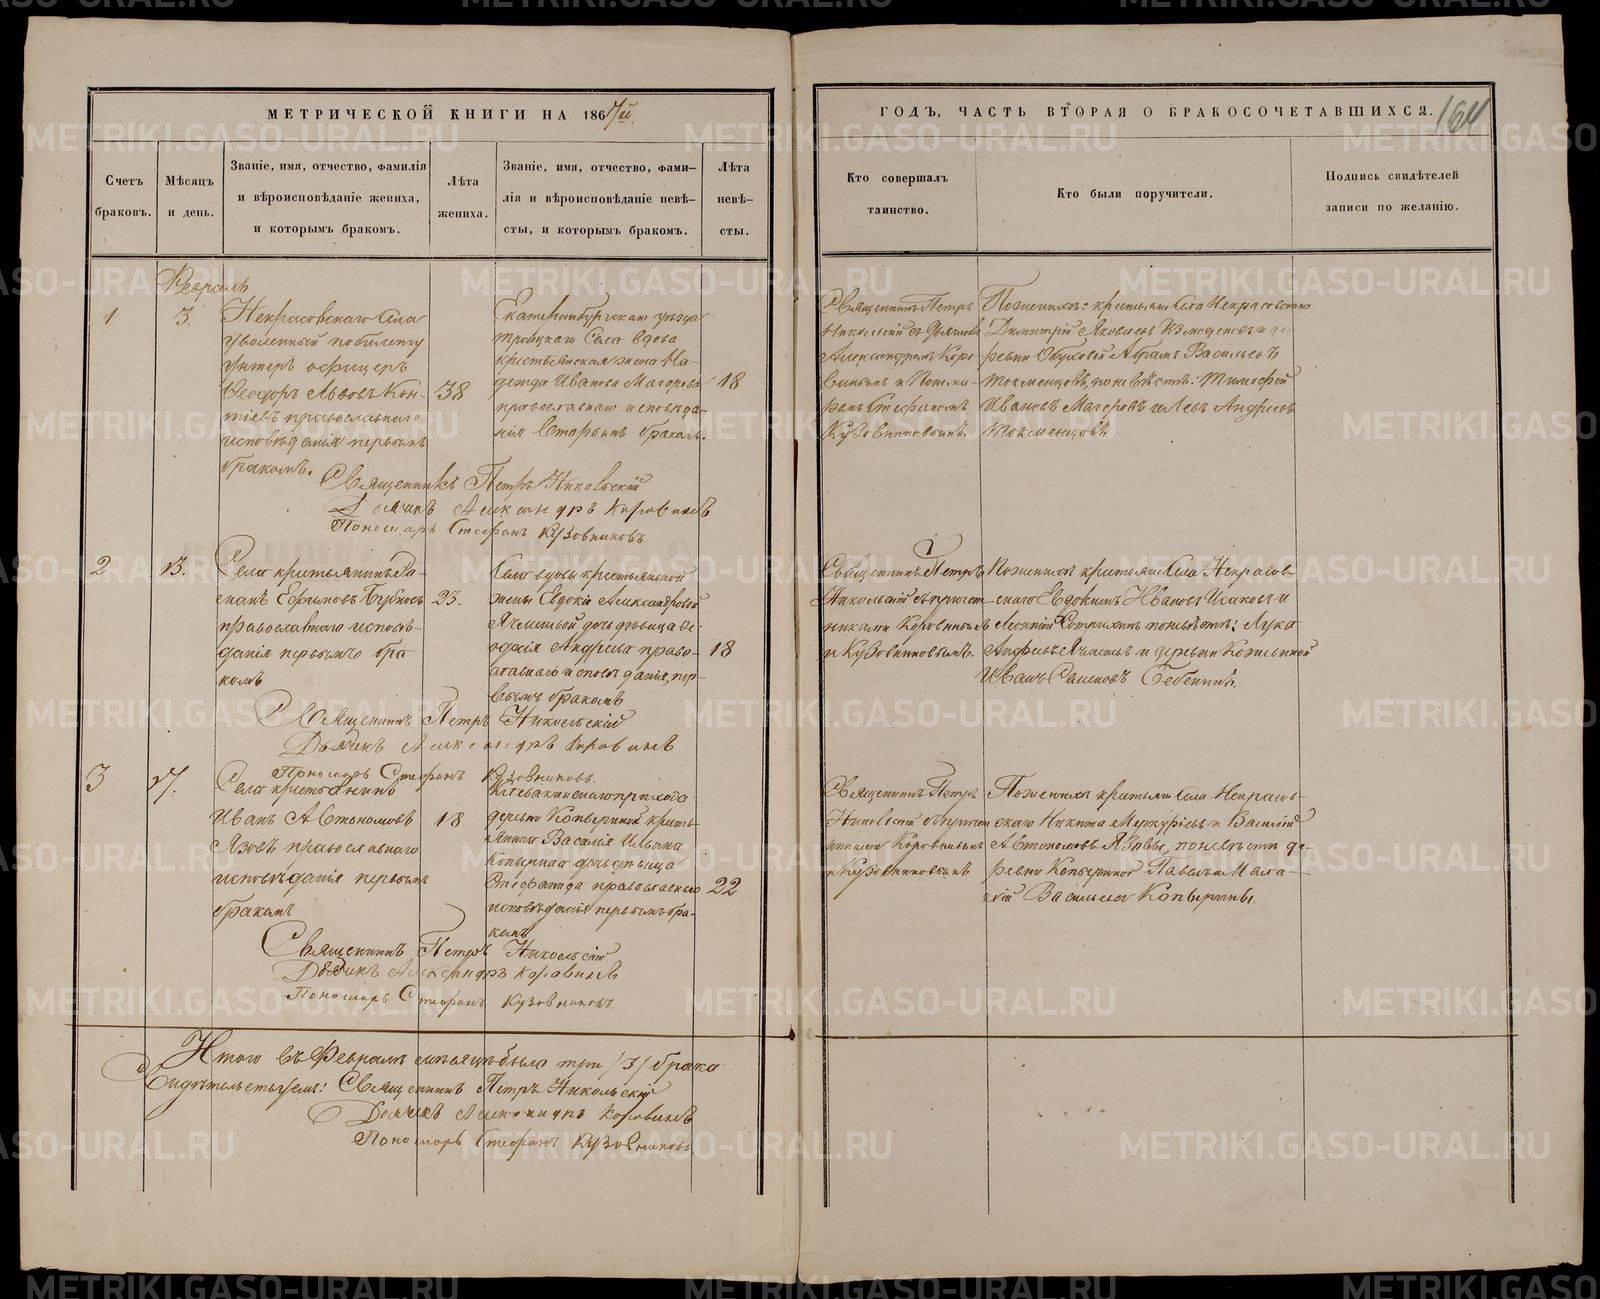 МЕТРИЧЕСКОЙ КНИГИ НА 1867й
ГОДЪ, ЧАСТЬ ВТОРАЯ О БРАКОСОЧЕТАВШИХСЯ.
164
Счетъ браковъ.
Мѣсяцъ и день.
Званіе, имя, отчество, фамилія
и вѣроисповѣданіе жениха,
и которымъ бракомъ.
Лѣта жениха.
Званіе, имя, отчество, фами-
лія и вѣроисповѣданіе невѣ-
сты, и которымъ бракомъ.
Лѣта невѣ-
сты.
Кто совершалъ
таинство.
Кто были поручители.
Подпись свидѣтелей
записи по желанію.
Февраль
1
3.
Некрасовскаго села
уволенный по билету
унтеръ офицеръ
Ѳеодоръ Львовъ Кон-
тіевъ православнаго
исповѣданія первымъ
бракомъ.
38
Екатеринбургскаго уѣзда
Троицкаго села вдова
крестьянская жена На-
дежда Иванова Магерова
православнаго исповѣда-
нія вторымъ бракомъ.
18
Священникъ Петръ
Никольскій съ Дьячкомъ
Александромъ Коро-
винымъ и Понома-
ремъ Стефаномъ
Кузовниковымъ.
По женихѣ: крестьяне села Некрасовскаго
Димитрій Яковлевъ Измоденовъ и де-
ревни Обуховой Абрамъ Васильевъ
Токменцовъ, по невѣстѣ: Тимофей
Ивановъ Магеровъ и Левъ Андреевъ
Токменцовъ.
Священникъ Петръ Никольскій
Дьячекъ Александръ Коровинъ
Пономарь Стефанъ Кузовниковъ
2
13.
Села крестьянинъ
Ефимовъ
православнаго исповѣ-
данія первымъ бра-
комъ
23.
Села вдовы крестьянской
жены Евдокіи Александровой
Ячменевой дочь дѣвица
Андреева право-
славнаго исповѣданія, пер-
вымъ бракомъ
18
Священникъ Петръ
Никольскій съ причет-
никами Коровинымъ
и Кузовниковымъ.
По женихѣ крестьяне села Некрасов-
скаго Евдокимъ Ивановъ Исаковъ и
по невѣстѣ: Лука
Андреевъ Ячменевъ и деревни
Иванъ Семеновъ Бебенинъ.
Священникъ Петръ Никольскій
Дьячекъ Александръ Коровинъ
Пономарь Стефанъ Кузовниковъ.
3
17.
Села крестьянинъ
Иванъ Автономовъ
Язовъ православнаго
исповѣданія первымъ
бракомъ
18
прихода
деревни Копыриной кресть-
янина Василія Ильина
Копырина дочь дѣвица
православнаго
исповѣданія первымъ бра-
комъ
22
Священникъ Петръ
Никольскій съ причет-
никами Коровинымъ
и Кузовниковымъ
По женихѣ крестьяне села Некрасов-
скаго Никита Меркурьевъ и Василій
Автономовъ Язовы, по невѣстѣ де-
ревни Копыриной Павелъ и Мала-
хій Васильевы Копырины.
Священникъ Петръ Никольскій
Дьячекъ Александръ Коровинъ
Пономарь Стефанъ Кузовниковъ
Итого въ Февралѣ мѣсяцѣ было три /3/ брака
Свидѣтельствуемъ: Священникъ Петръ Никольскій
Дьячекъ Александръ Коровинъ
Пономарь Стефанъ Кузовниковъ
METRIKI.GASO-URAL.RU